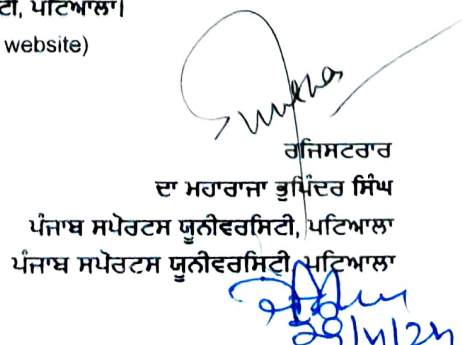 ਟੀ, ਪਟਿਆਲਾ।
website)
ਰਜਿਸਟਰਾਰ
ਦਾ ਮਹਾਰਾਜਾ ਭੁਪਿੰਦਰ ਸਿੰਘ
ਪੰਜਾਬ ਸਪੋਰਟਸ ਯੂਨੀਵਰਸਿਟੀ, ਪਟਿਆਲਾ
ਪੰਜਾਬ ਸਪੋਰਟਸ ਯੂਨੀਵਰਸਿਟੀ, ਪਟਿਆਲਾ